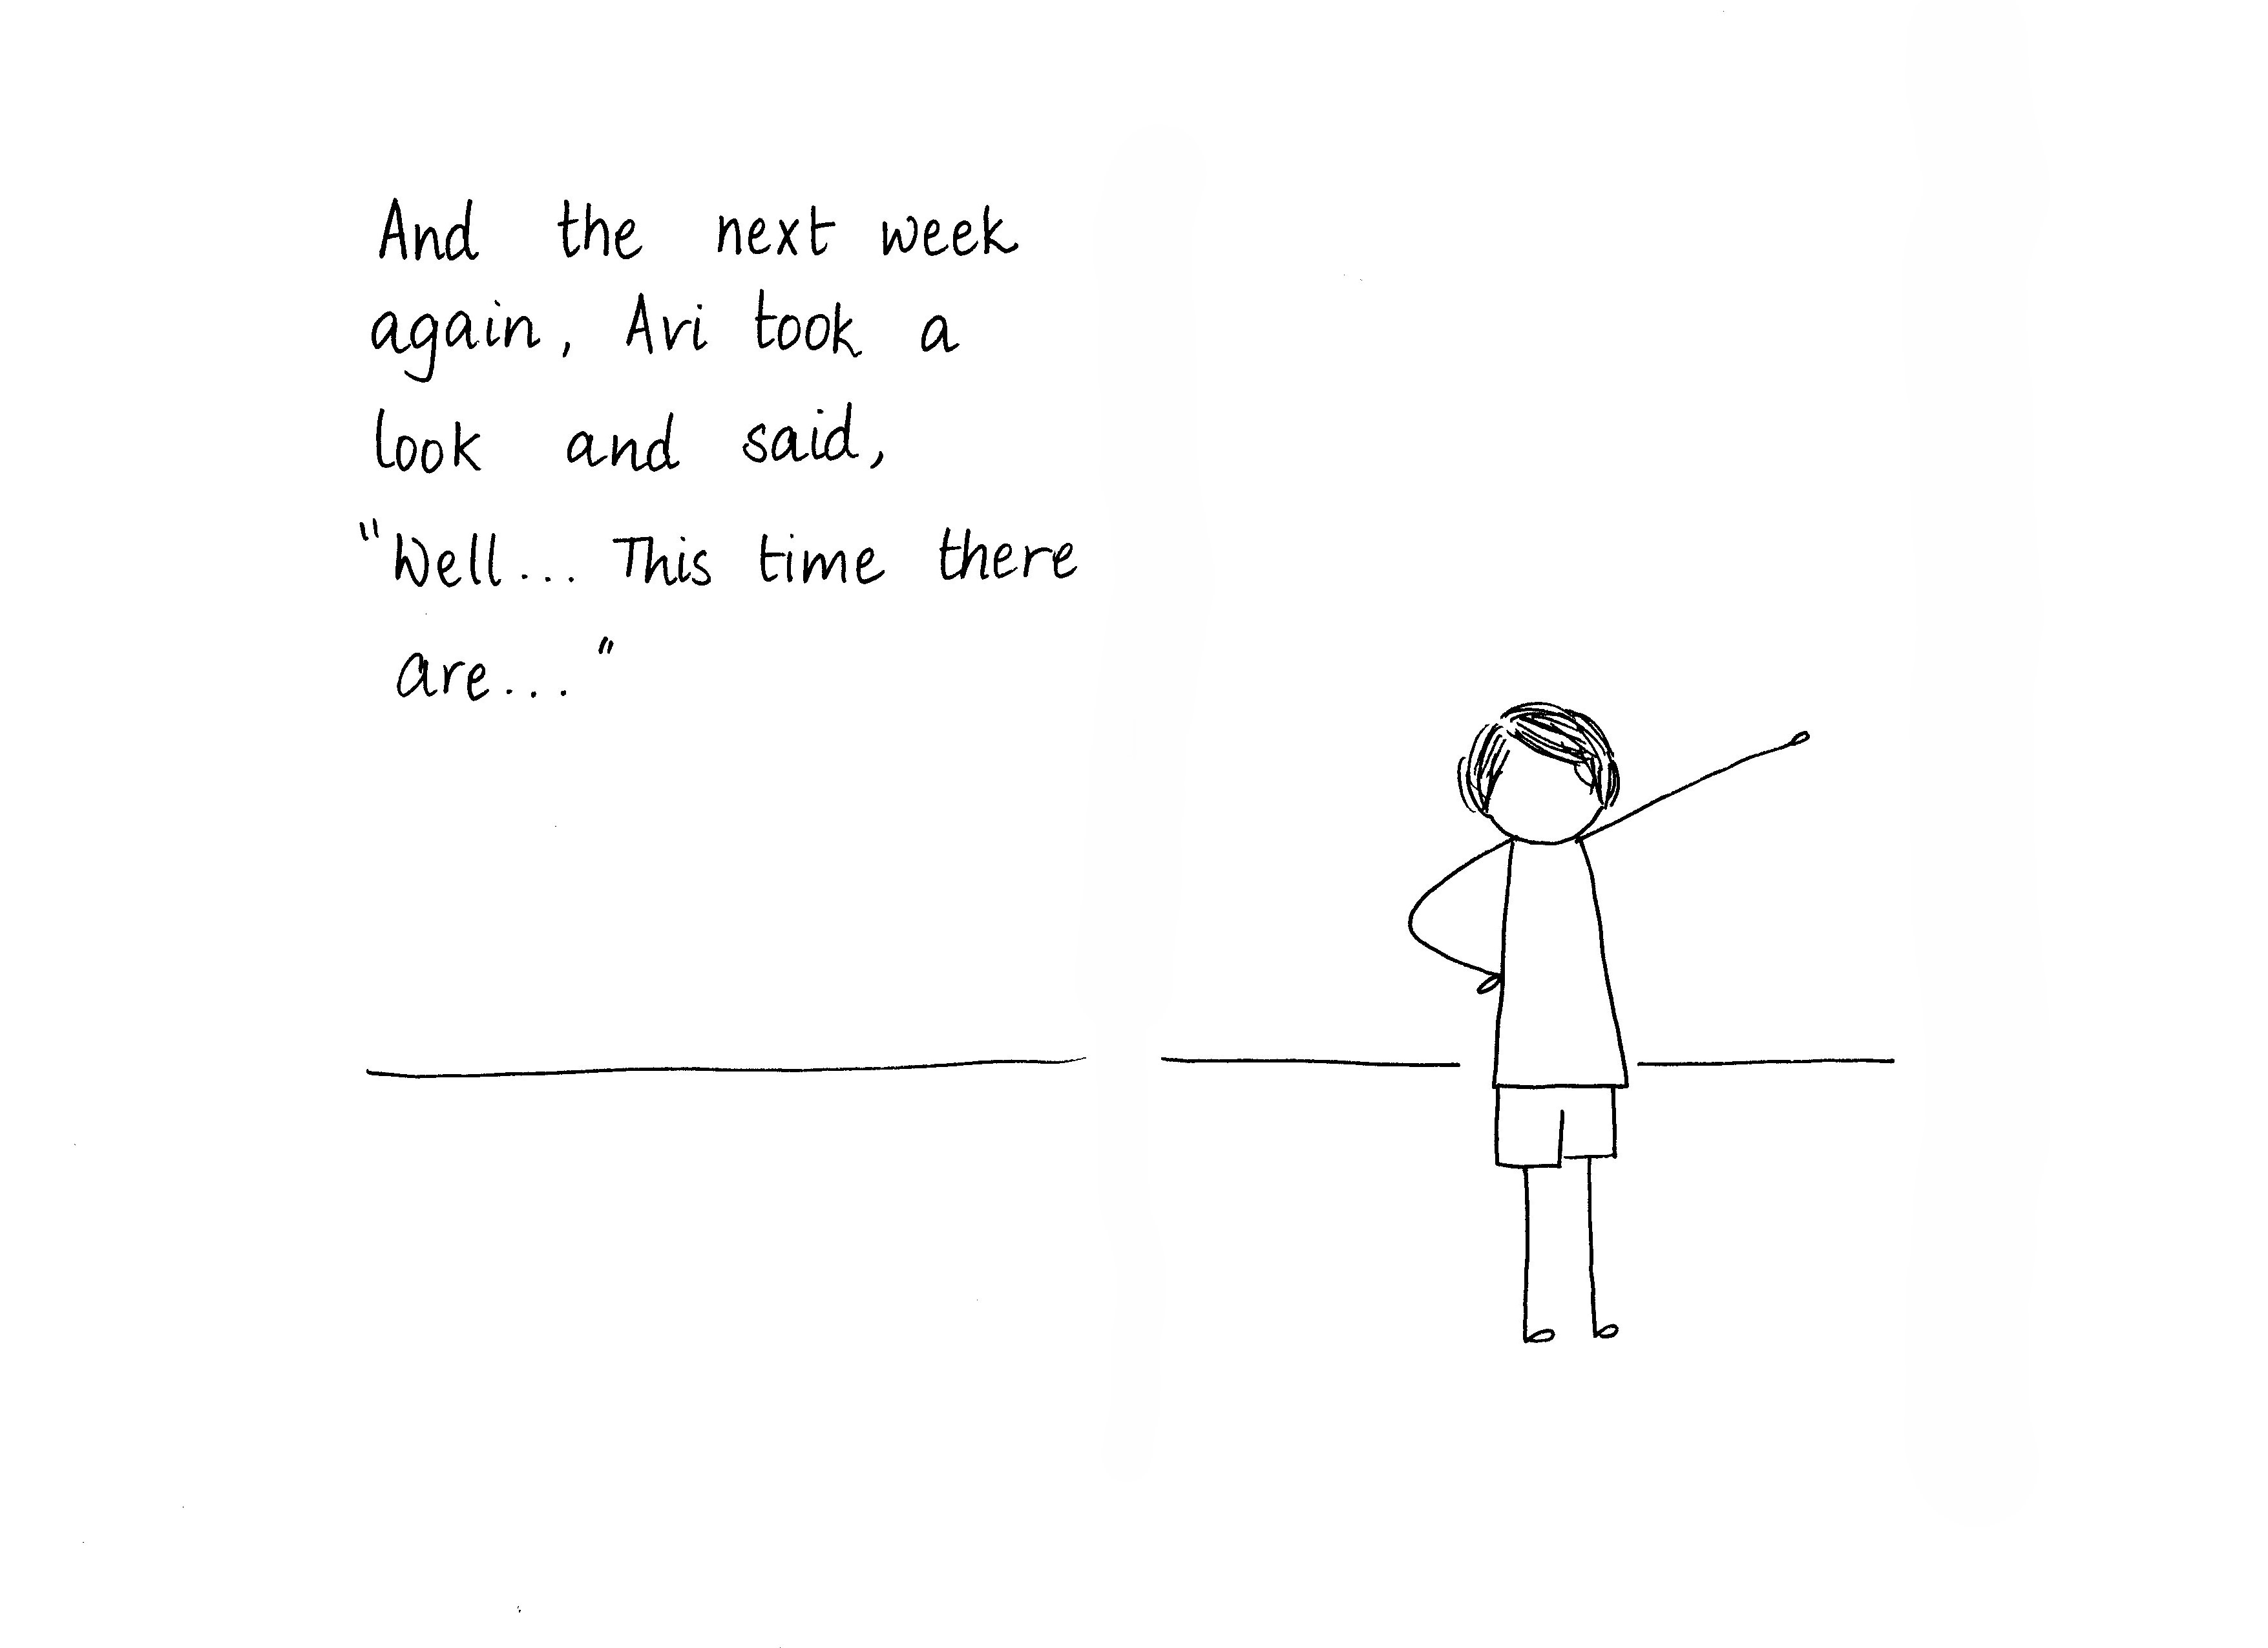 And the next week
again, Avi took a
look and said,
"Well... This time there
are..."